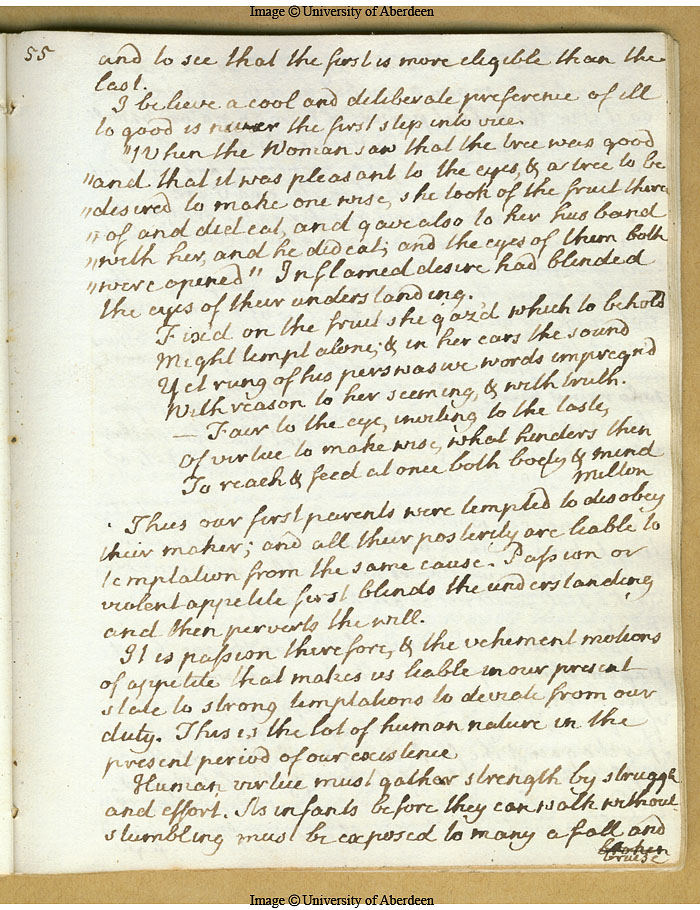 Image © University of Aberdeen
55
and to see that the first is more eligible than the
last.
I believe a cool and deliberate preference of ill
to good is never the first step into vice.
"When the Woman saw that the tree was good
"and that it was pleasant to the eyes, & a tree to be
"desired to make one wise, she took of the fruit there
"of and did eat, and gave also to her husband
"with her, and he did eat; and the eyes of them both
"were opened" Inflamed desire had blinded
the eyes of their understanding.
Fix'd on the fruit she gaz'd which to behold
Might tempt alone; & in her ears the sound
Yet rung of his perswasive words impregn'd
With reason to her seeming, & with truth.
— Fair to the eye, inviting to the taste,
Of virtue to make wise, what hinders then
To reach & feed at once both body & mind
Milton
Thus our first parents were tempted to disobey
their maker; and all their posterity are liable to
temptation from the same cause. Passion or
violent appetite first blinds the understanding
and then perverts the will.
It is passion therefore, & the vehement motions
of appetite that makes us liable in our present
state to strong temptations to deviate from our
duty. This is the lot of human nature in the
present period of our existence
Human virtue must gather strength by struggle
and effort. As infants before they can walk without
stumbling must be exposed to many a fall and
bruise
Image © University of Aberdeen